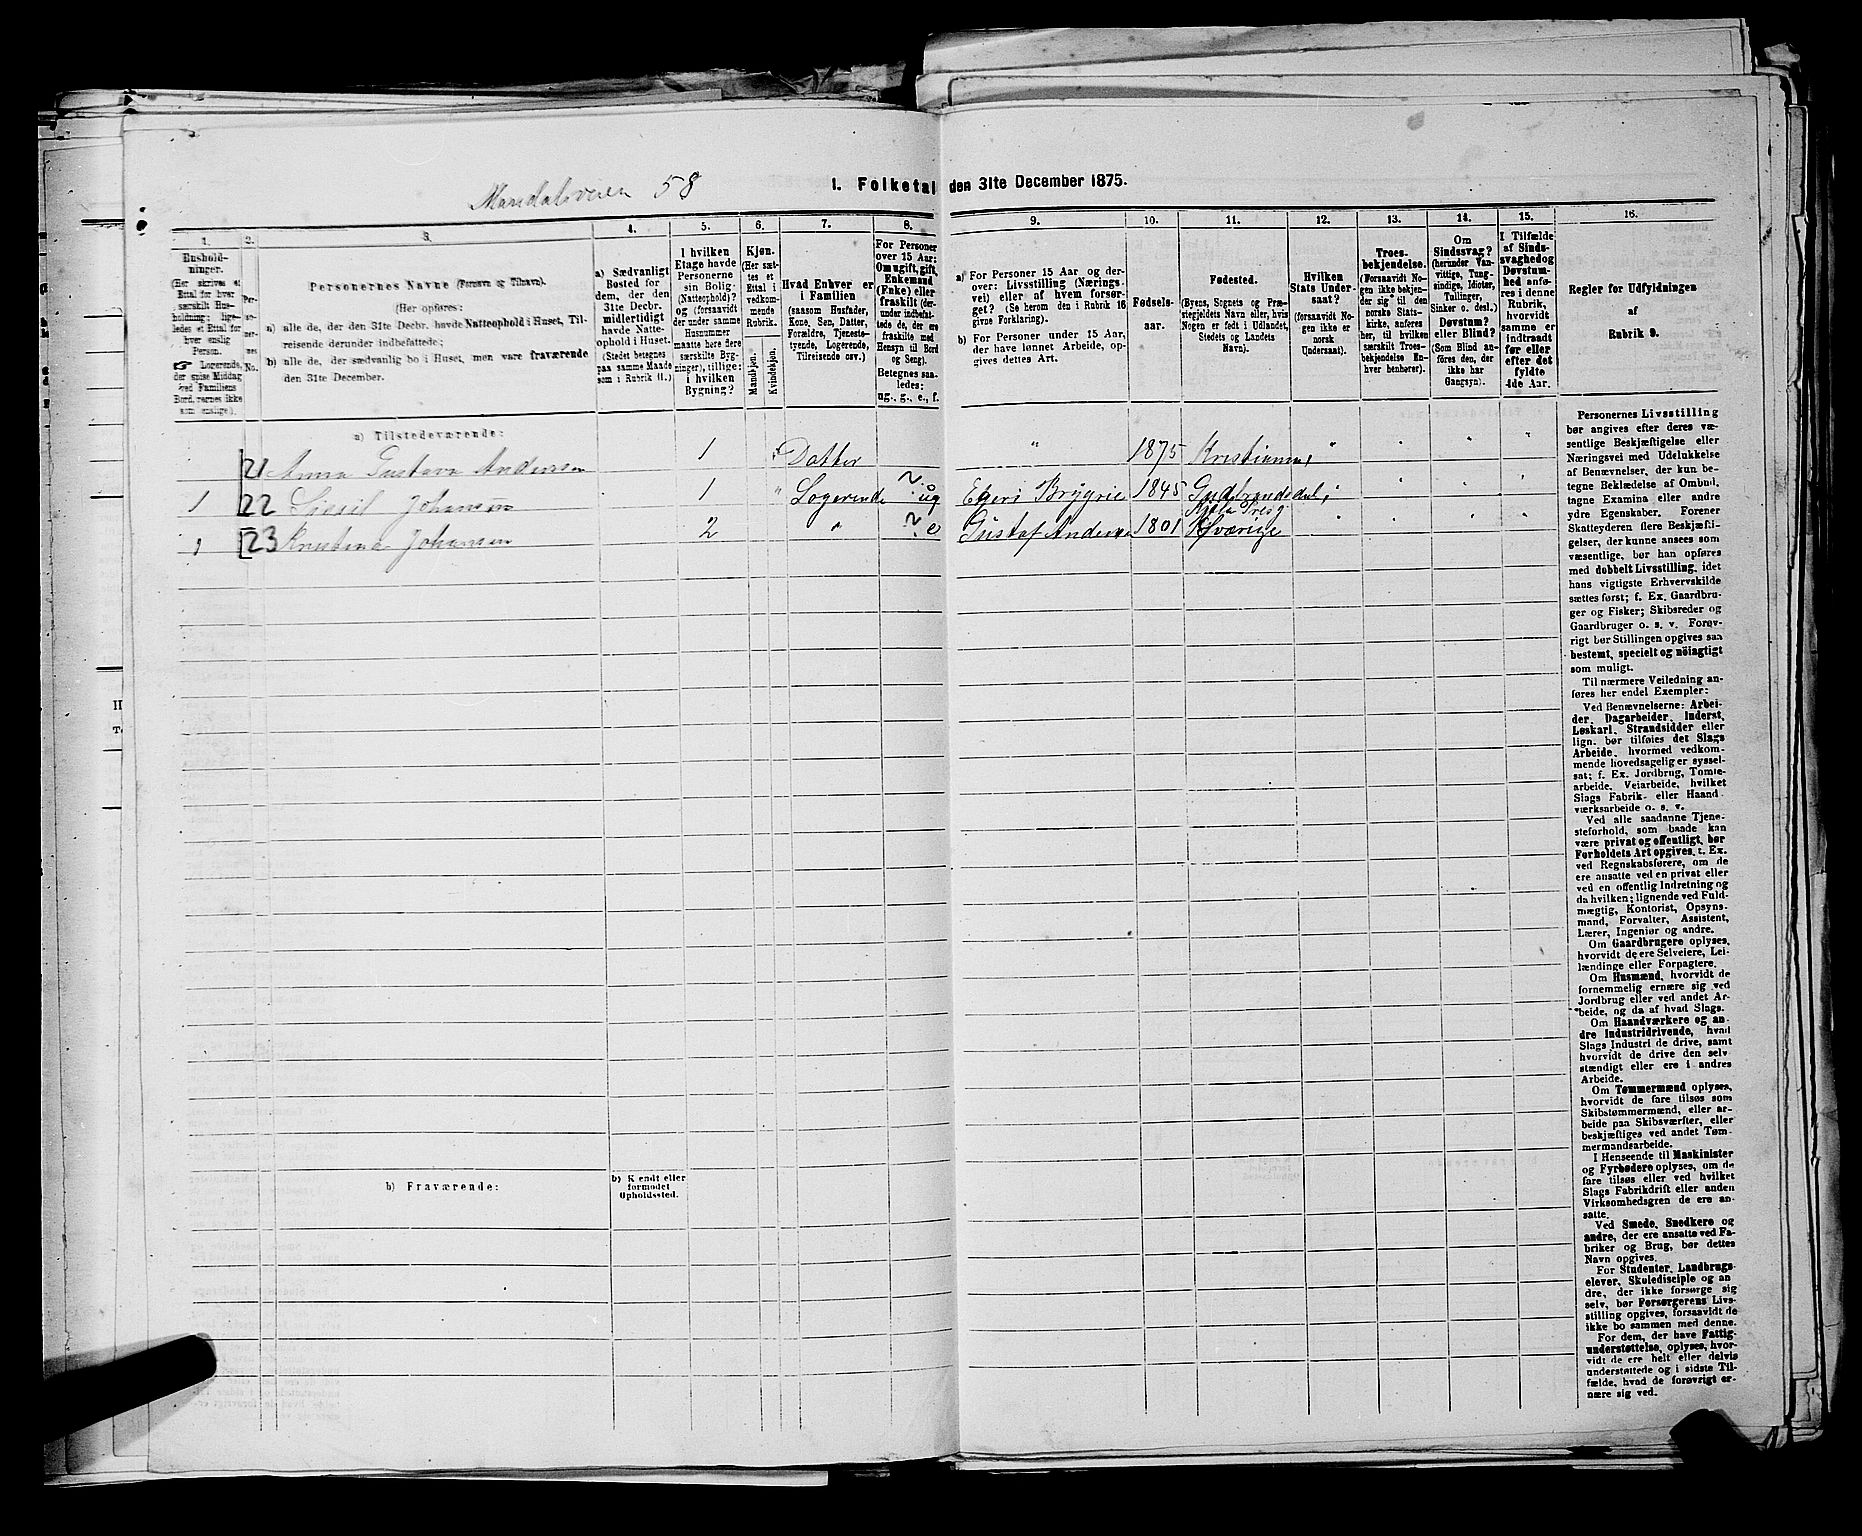 Maridalsveien 58
1. Folketal den 31te December 1875.
1.
Husholdninger.
(Her skrives et
Ettal for hver
særskilt Husholdning;
ligeledes et Ettal for
hver enslig
Person.
☛ Logerende,
der spise Middag
ved Familiens
Bord, regnes ikke
som enslige).
2.
Personernes
No.
3.
Personernes Navne (Fornavn og Tilnavn).
(Her opføres:
a) alle de, der den 31te Decbr. havde Natteophold i Huset, Tilreisende derunder indbefattede;
b) alle de, der sædvanlig bo i Huset, men vare fraværende den 31te December.
4.
a) Sædvanligt
Bosted for
dem, der den
31te Decbr.
midlertidigt
havde Natteophold i Huset.
(Stedet betegnes
paa samme Maade
som i Rubrik 11.)
5.
I hvilken
Etage havde
Personerne
sin Bolig
(Natteophold)?
og (forsaavidt
der under samme
Husnummer
maatte høre flere
særskilte Bygninger), tillige:
i hvilken
Bygning?
6.
Kjøn.
(Her sættes et
Ettal i
vedkommende
Rubrik.
Mandkjøn.
Kvindekjøn.
7.
Hvad Enhver er
i Familien
(saasom Husfader,
Kone, Søn, Datter,
Forældre, Tjenestetyende, Logerende,
Tilreisende osv.)
8.
For Personer
over 15 Aar:
Om ugift, gift,
Enkemand
(Enke) eller
fraskilt (derunder indbefattede de, der ere
fraskilte med
Hensyn til Bord
og Seng).
Betegnes saaledes:
ug., g., e., f.
9.
a) For Personer 15 Aar og derover: Livsstilling (Næringsvei) eller af hvem forsørget? (Se herom den i Rubrik 16
givne Forklaring).
b) For Personer under 15 Aar,
der have lønnet Arbeide, opgives dettes Art.
10.
Fødselsaar.
11.
Fødested.
(Byens, Sognets og Præstegjeldets Navn eller, hvis
Nogen er født i Udlandet,
Stedets og Landets
Navn).
12.
Hvilken
Stats Undersaat?
(forsaavidt Nogen ikke er
norsk
Undersaat).
13.
Troesbekjendelse.
(Forsaavidt Nogen ikke bekjender sig til den
norske Statskirke, anføres
her, til hvilken
særskilt Troesbekjendelse Enhver henhører).
14.
Om
Sindssvag?
(herunder Vanvittige, Tungsindige, Idioter,
Tullinger,
Sinker o. desl.)
Døvstum?
eller Blind?
(Som Blind anføres den, der
ikke har
Gangsyn).
15.
I Tilfælde
af Sindssvaghed og
Døvstumhed anføres i denne
Rubrik,
hvorvidt
samme er
indtraadt
før eller
efter det
fyldte
4de Aar.
16.
Regler for Udfyldningen
af
Rubrik 9.
a) Tilstedeværende:
21 Anna Gustava Andersen 1 Datter " 1875 Kristiania
1 22 Johansen 1 Logerende ug 1845 Gudbrandsdal
1 23 Kristina Johansen 2 " e Gustaf Andersen 1801 Sværige
b) Fraværende:
b) Kendt eller
formodet
Opholdssted.
Personernes Livsstilling
bør angives efter deres væsentlige Beskjæftigelse eller
Næringsvei med Udelukkelse
af Benævnelser, der kun betegne Beklædelse af Ombud,
tagne Examina eller andre
ydre Egenskaber. Forener
Skatteyderen flere Beskjæftigelser, der kunne ansees som
væsentlige, bør han opføres
med dobbelt Livsstilling, idet
hans vigtigste Erhvervskilde
sættes først; f. Ex. Gaardbruger og Fisker; Skibsreder og
Gaardbruger o. s. v. Forøvrigt bør Stillingen opgives saa
bestemt, specielt og nöiagtigt
som muligt.
Til nærmere Veiledning anføres her endel Exempler:
Ved Benævnelserne: Arbeider, Dagarbeider, Inderst,
Løskarl, Strandsidder eller
lign. bør tilføies det Slags
Arbeide, hvormed vedkommende hovedsagelig er sysselsat; f. Ex. Jordbrug, Tomtearbeide, Veiarbeide, hvilket
Slags Fabrik- eller Haandværksarbeide o. s. v.
Ved alle saadanne Tjenesteforhold, som baade kan
være privat og offentligt, bør
Forholdets Art opgives, f. Ex.
ved Regnskabsførere, om de
ere ansatte ved en privat eller
ved en offentlig Indretning og
da hvilken; lignende ved Fuldmægtig, Kontorist, Opsynsmand, Forvalter, Assistent,
Lærer, Ingeniør og andre.
Om Gaardbrugere oplyses,
hvorvidt de ere Selveiere, Leilændinge eller Forpagtere.
Om Husmænd, hvorvidt de
fornemmelig ernære sig ved
Jordbrug eller ved andet Arbeide, og da af hvad Slags.
Om Haandværkere og andre Industridrivende, hvad
Slags Industri de drive, samt
hvorvidt de drive den selvstændigt eller ere i andres
Arbeide.
Om Tømmermænd oplyses,
hvorvidt de fare tilsøs som
Skibstømmermænd, eller arbeide paa Skibsværfter, eller
beskjæftiges ved andet Tømmermandsarbeide.
I Henseende til Maskinister
og Fyrbødere oplyses, om de
fare tilsøs eller ved hvilket
Slags Fabrikdrift eller anden
Virksomhedsgren de ere ansatte.
Ved Smede, Snedkere og
andre, der ere ansatte ved Fabriker og Brug, bør dettes
Navn opgives.
For Studenter, Landbrugselever, Skoledisciple og andre, der ikke forsørge sig
selv, bør Forsørgerens Livsstilling opgives, forsaavidt de
ikke bo sammen med denne.
For dem, der have Fattigunderstøttelse, oplyses, hvorvidt de ere helt eller delvis
understøttede og i sidste Tilfælde, hvad de forøvrigt ernære sig ved.